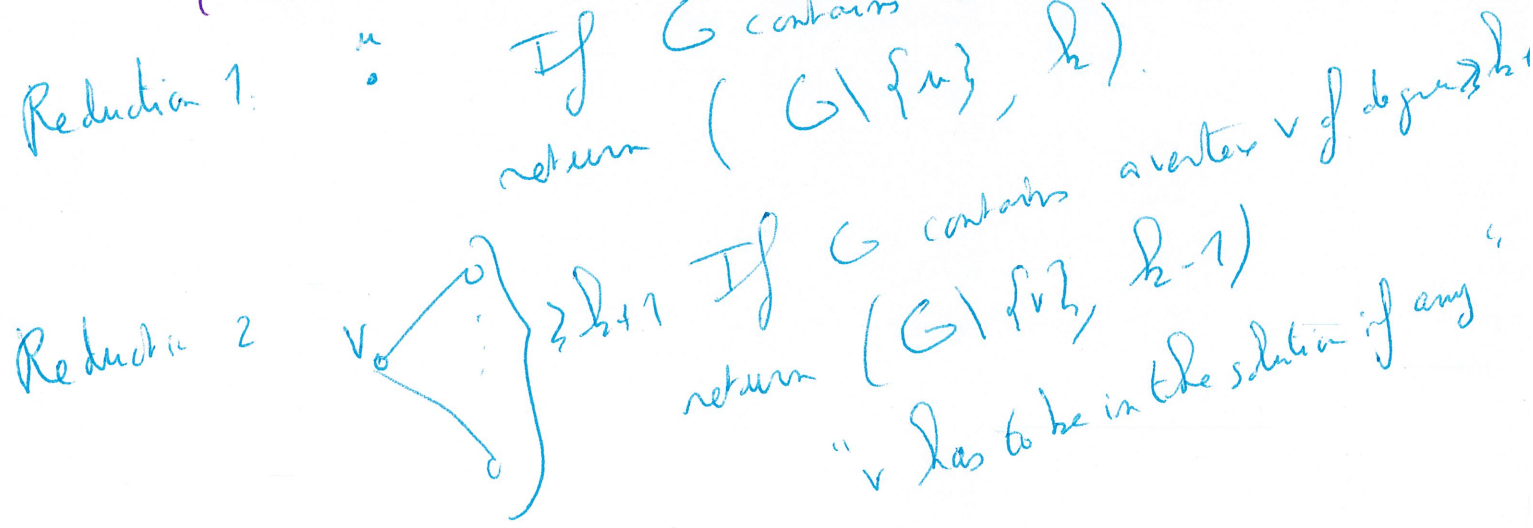 Reduction 1. u If G contains
return (G\{u}, k).
Reduction 2 v ≥k+1 If G contains a vertex v of degree ≥k+
return (G\{v}, k-1)
"v has to be in the solution if any"